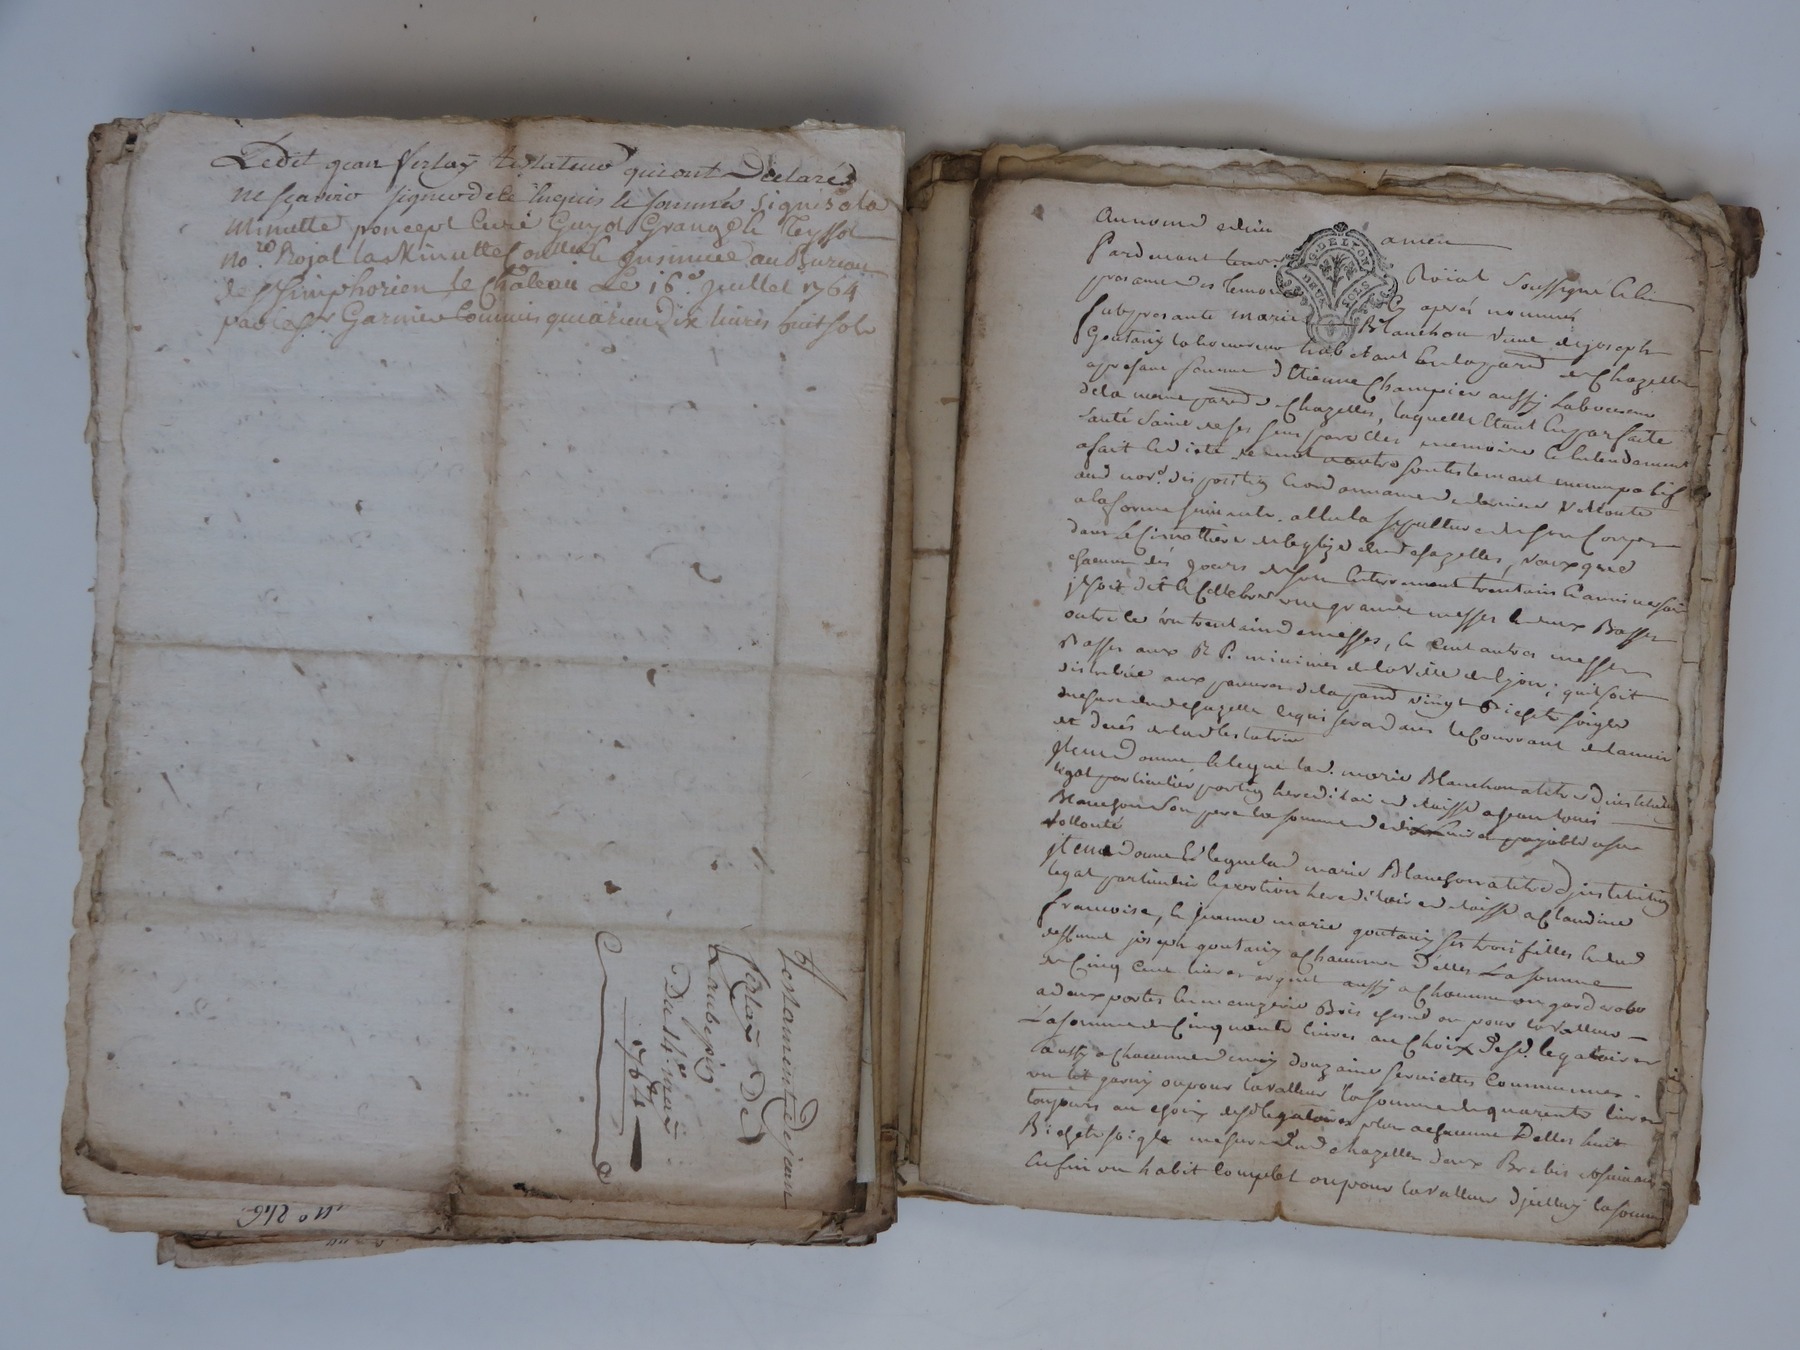 Ledit jean Verlay testateur qui ont Declaré
ne sçavoir signer de ce Enquis & sommés signés a la
Minutte poncept Curé Guyot Grange & Teyssot
no.re Royal la Minutte Conttlée & Insinuée au Bureau
de St Simphorien le Château Le 16e Juillet 1764
par le Sr Garnier Commis qui a reçu Dix livres huit sols
Testament de jean
Verlay De
Laubepin
Du 14e mars
1764
N° 246
Au nom de dieu amen
Pardevant Roïal soussigné &
presance des temoins cy aprés nommés
fut presante marie Blanchon veuve de joseph
Goutany laboureur habitant en la parr de Chazelles
a presant femme d'Etienne Champier aussy Laboureur
de la meme parr de Chazelles, laquelle Etant en parfaite
santé saine de ses sens parolles memoire & Entendement
a fait & dicté de mot a autre son testement nuncupatif
and disposition & ordonnance de derniere Vollonté
a la forme suivante. a Elu la sepulture de son Corps
dans le simettiere de l'eglize dud chazelles, veux que
chacun des jours de son Enterrement trentain & annuersaire
il soit dit & Cellebré une grande messe & deux Basses
outre ce un trentain de messes, & Cent autres messes
Basses aux R P. minimes de la Ville de Lyon; qu'il soit
distribué aux pauvres de la parr vingt Bichets soigle
mesure dud chazelle & qui sera dans le Courrant de l'année
et deces de lad testatrice
Item donne & legue lad. marie Blanchon a titre d'institution
legat particulier portion hereditaire et laisse a jean louis
Blanchon son pere la somme de dix livres payable a sa
vollonté
Item donne & legue lad marie Blanchon a titre d'institution
legat particulier & portion hereditaire et laisse a Claudine
francoise, & jeanne marie goutany ses trois filles & dud
deffunt joseph goutany a Chacunne d'elles La somme
de Cinq Cent livres argent aussy a Chacunne un garderobe
a deux portes & menuzerie Bois chene ou pour la valleur
La somme de Cinquante livres au Choix desd. legataires
aussy a Chacunne d'une douzaine serviettes Communes
un lit garny ou pour la valleur la somme de quarente livres
toujours au choix desd legataires plus a chacune D'elles huit
Bichets soigle mesure dud chazelles deux Brebis et suivans
Enfin un habit Complet ou pour la valleur d'jcelluy la somme
G. DE LYON
DEUX SOLS